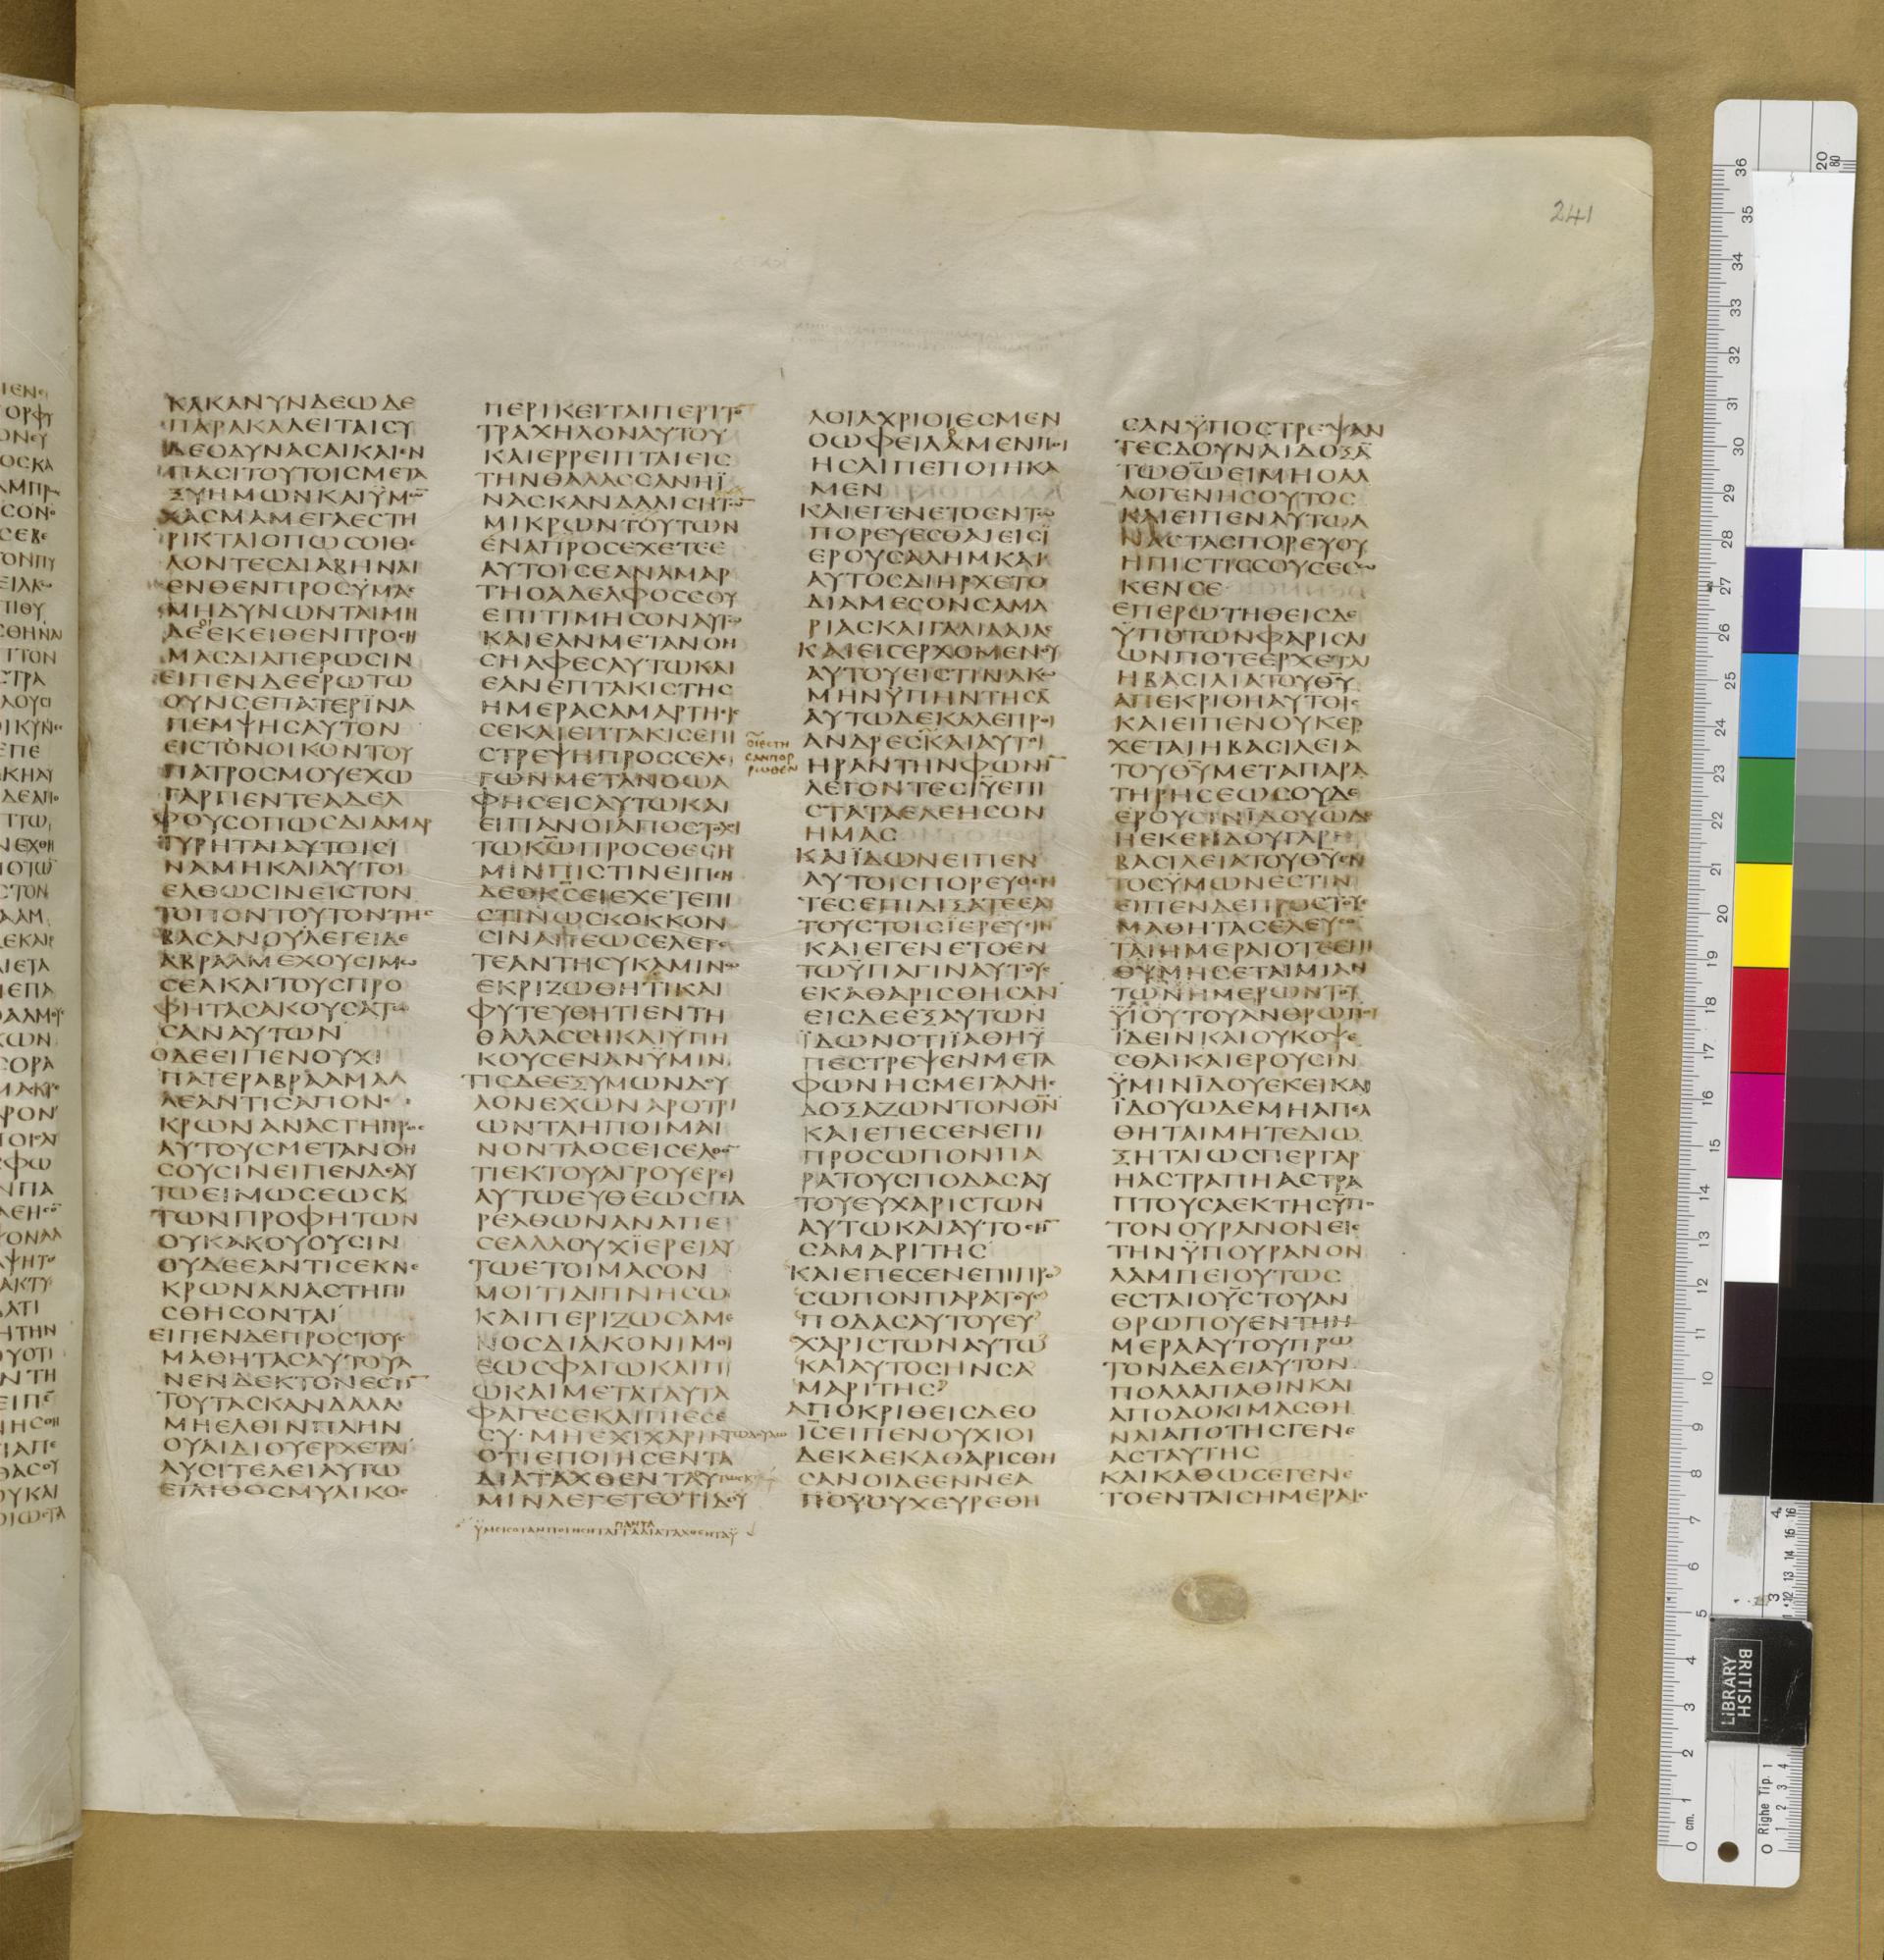 241
ΚΑΚΑΝΥΝΔΕΩΔΕ
ΠΑΡΑΚΑΛΕΙΤΑΙCΥ
ΔΕΟΔΥΝΑCΑΙΚΑΙΕΝ
ΠΑCΙΤΟΥΤΟΙCΜΕΤΑ
ΞΥΗΜΩΝΚΑΙΫΜΩ̅
ΧΑCΜΑΜΕΓΑΕCΤΗ
ΡΙΚΤΑΙΟΠΩCΟΙΘΕ
ΛΟΝΤΕCΔΙΑΒΗΝΑΙ
ΕΝΘΕΝΠΡΟCΫΜΑC
ΜΗΔΥΝΩΝΤΑΙΜΗ
ΔΕΕΚΕΙΘΕΝΠΡΟCΗ
ΜΑCΔΙΑΠΕΡΩCΙΝ
ΕΙΠΕΝΔΕΕΡΩΤΩ
ΟΥΝCΕΠΑΤΕΡΪΝΑ
ΠΕΜΨΗCΑΥΤΟΝ
ΕΙCΤΟΝΟΙΚΟΝΤΟΥ
ΠΑΤΡΟCΜΟΥΕΧΩ
ΓΑΡΠΕΝΤΕΑΔΕΛ
ΦΟΥCΟΠΩCΔΙΑΜΑΡ
ΤΥΡΗΤΑΙΑΥΤΟΙCΙ
ΝΑΜΗΚΑΙΑΥΤΟΙ
ΕΛΘΩCΙΝΕΙCΤΟΝ
ΤΟΠΟΝΤΟΥΤΟΝΤΗC
ΒΑCΑΝΟΥΛΕΓΕΙΔΕ
ΑΒΡΑΑΜΕΧΟΥCΙΜΩ
CΕΑΚΑΙΤΟΥCΠΡΟ
ΦΗΤΑCΑΚΟΥCΑΤΩ
CΑΝΑΥΤΩΝ
ΟΔΕΕΙΠΕΝΟΥΧΙ
ΠΑΤΕΡΑΒΡΑΑΜΑΛ
ΛΕΑΝΤΙCΑΠΟΝΕ
ΚΡΩΝΑΝΑCΤΗΠΡΟC
ΑΥΤΟΥCΜΕΤΑΝΟΗ
CΟΥCΙΝΕΙΠΕΝΔΕΑΥ
ΤΩΕΙΜΩCΕΩCΚ
ΤΩΝΠΡΟΦΗΤΩΝ
ΟΥΚΑΚΟΥΟΥCΙΝ
ΟΥΔΕΕΑΝΤΙCΕΚΝΕ
ΚΡΩΝΑΝΑCΤΗΠΙ
CΘΗCΟΝΤΑΙ
ΕΙΠΕΝΔΕΠΡΟCΤΟΥC
ΜΑΘΗΤΑCΑΥΤΟΥΑ
ΝΕΝΔΕΚΤΟΝΕCΤΙ̅
ΤΟΥΤΑCΚΑΝΔΑΛΑ
ΜΗΕΛΘΙΝΠΛΗΝ
ΟΥΑΙΔΙΟΥΕΡΧΕΤΑΙ
ΛΥCΙΤΕΛΕΙΑΥΤΩ
ΕΙΛΙΘΟCΜΥΛΙΚΟC
ΠΕΡΙΚΕΙΤΑΙΠΕΡΙΤΟ̅
ΤΡΑΧΗΛΟΝΑΥΤΟΥ
ΚΑΙΕΡΡΕΙΠΤΑΙΕΙC
ΤΗΝΘΑΛΑCCΑΝΗΪ
ΝΑCΚΑΝΔΑΛΙCΗΤΩ̅
ΜΙΚΡΩΝΤΟΥΤΩΝ
ΕΝΑΠΡΟCΕΧΕΤΕΕ
ΑΥΤΟΙCΕΑΝΑΜΑΡ
ΤΗΟΑΔΕΛΦΟCCΟΥ
ΕΠΙΤΙΜΗCΟΝΑΥΤΩ
ΚΑΙΕΑΝΜΕΤΑΝΟΗ
CΗΑΦΕCΑΥΤΩΚΑΙ
ΕΑΝΕΠΤΑΚΙCΤΗC
ΗΜΕΡΑCΑΜΑΡΤΗΕΙC
CΕΚΑΙΕΠΤΑΚΙCΕΠΙ
CΤΡΕΨΗΠΡΟCCΕΛΕ
ΓΩΝΜΕΤΑΝΟΩΑ
ΦΗCΕΙCΑΥΤΩΚΑΙ
ΕΙΠΑΝΟΙΑΠΟCΤΟΛΟΙ
ΤΩΚ̅Ω̅ΠΡΟCΘΕCΗ
ΜΙΝΠΙCΤΙΝΕΙΠΕΝ
ΔΕΟΚ̅C̅ΕΙΕΧΕΤΕΠΙ
CΤΙΝΩCΚΟΚΚΟΝ
CΙΝΑΠΕΩCΕΛΕΓΕ
ΤΕΑΝΤΗCΥΚΑΜΙΝΩ
ΕΚΡΙΖΩΘΗΤΙΚΑΙ
ΦΥΤΕΥΘΗΤΙΕΝΤΗ
ΘΑΛΑCCΗΚΑΙΫΠΗ
ΚΟΥCΕΝΑΝΫΜΙΝ
ΤΙCΔΕΕΞΥΜΩΝΔΟΥ
ΛΟΝΕΧΩΝΑΡΟΤΡΙ
ΩΝΤΑΗΠΟΙΜΑΙ
ΝΟΝΤΑΟCΕΙCΕΛΘΟ̅
ΤΙΕΚΤΟΥΑΓΡΟΥΕΡΕΙ
ΑΥΤΩΕΥΘΕΩCΠΑ
ΡΕΛΘΩΝΑΝΑΠΕ
CΕΑΛΛΟΥΧΪΕΡΕΙΑΥ
ΤΩΕΤΟΙΜΑCΟΝ
ΜΟΙΤΙΔΙΠΝΗCΩ
ΚΑΙΠΕΡΙΖΩCΑΜΕ
ΝΟCΔΙΑΚΟΝΙΜΟΙ
ΕΩCΦΑΓΩΚΑΙΠΙ
ΩΚΑΙΜΕΤΑΤΑΥΤΑ
ΦΑΓΕCΕΚΑΙΠΙΕCΕ
CΥ·ΜΗΕΧΙΧΑΡΙΝΤΩΔΟΥΛΩ
ΟΤΙΕΠΟΙΗCΕΝΤΑ
ΔΙΑΤΑΧΘΕΝΤΑΟΥ
ΜΙΝΛΕΓΕΤΕΟΤΙΔΟΥ
ΫΜΕΙCΟΤΑΝΠΟΙΗCΗΤΑΙΠΑΝΤΑΤΑΔΙΑΤΑΧΘΕΝΤΑΫ
ΛΟΙΑΧΡΙΟΙΕCΜΕΝ
ΟΩΦΕΙΛΑΜΕΝΠΟΙ
ΗCΑΙΠΕΠΟΙΗΚΑ
ΜΕΝ
ΚΑΙΕΓΕΝΕΤΟΕΝΤΩ
ΠΟΡΕΥΕCΘΑΙΕΙCΪ
ΕΡΟΥCΑΛΗΜΚΑΙ
ΑΥΤΟCΔΙΗΡΧΕΤΟ
ΔΙΑΜΕCΟΝCΑΜΑ
ΡΙΑCΚΑΙΓΑΛΙΛΑΙΑC
ΚΑΙΕΙCΕΡΧΟΜΕΝΟΥ
ΑΥΤΟΥΕΙCΤΙΝΑΚΩ
ΜΗΝΫΠΗΝΤΗCΑ̅
ΑΥΤΩΔΕΚΑΛΕΠΡΟΙ
ΑΝΔΡΕCΚΑΙΑΥΤΟΙ
ΟΙΕCΤΗ
CΑΝΠΟΡ
ΡΩΘΕΝ
ΗΡΑΝΤΗΝΦΩΝΗ̅
ΛΕΓΟΝΤΕCΙ̅Υ̅ΕΠΙ
CΤΑΤΑΕΛΕΗCΟΝ
ΗΜΑC
ΚΑΙΪΔΩΝΕΙΠΕΝ
ΑΥΤΟΙCΠΟΡΕΥΘΕΝ
ΤΕCΕΠΙΔΙΞΑΤΕΕΑΥ
ΤΟΥCΤΟΙCΪΕΡΕΥCΙΝ
ΚΑΙΕΓΕΝΕΤΟΕΝ
ΤΩΫΠΑΓΙΝΑΥΤΟΥC
ΕΚΑΘΑΡΙCΘΗCΑΝ
ΕΙCΔΕΕΞΑΥΤΩΝ
ΪΔΩΝΟΤΙΪΑΘΗΫ
ΠΕCΤΡΕΨΕΝΜΕΤΑ
ΦΩΝΗCΜΕΓΑΛΗC
ΔΟΞΑΖΩΝΤΟΝΘ̅Ν̅
ΚΑΙΕΠΕCΕΝΕΠΙ
ΠΡΟCΩΠΟΝΠΑ
ΡΑΤΟΥCΠΟΔΑCΑΥ
ΤΟΥΕΥΧΑΡΙCΤΩΝ
ΑΥΤΩΚΑΙΑΥΤΟCΗ̅
CΑΜΑΡΙΤΗC
ΚΑΙΕΠΕCΕΝΕΠΙΠΡΟ
CΩΠΟΝΠΑΡΑΤΟΥC
ΠΟΔΑCΑΥΤΟΥΕΥ
ΧΑΡΙCΤΩΝΑΥΤΩ
ΚΑΙΑΥΤΟCΗΝCΑ
ΜΑΡΙΤΗC
ΑΠΟΚΡΙΘΕΙCΔΕΟ
Ι̅C̅ΕΙΠΕΝΟΥΧΙΟΙ
ΔΕΚΑΕΚΑΘΑΡΙCΘΗ
CΑΝΟΙΔΕΕΝΝΕΑ
ΠΟΥΟΥΧΕΥΡΕΘΗ
CΑΝΫΠΟCΤΡΕΨΑΝ
ΤΕCΔΟΥΝΑΙΔΟΞΑ̅
ΤΩΘ̅Ω̅ΕΙΜΗΟΑΛ
ΛΟΓΕΝΗCΟΥΤΟC
ΚΑΙΕΙΠΕΝΑΥΤΩΑ
ΝΑCΤΑCΠΟΡΕΥΟΥ
ΗΠΙCΤΙCCΟΥCΕCΩ
ΚΕΝCΕ
ΕΠΕΡΩΤΗΘΕΙCΔΕ
ΫΠΟΤΩΝΦΑΡΙCΑΙ
ΩΝΠΟΤΕΕΡΧΕΤΑΙ
ΗΒΑCΙΛΙΑΤΟΥΘ̅Υ̅
ΑΠΕΚΡΙΘΗΑΥΤΟΙC
ΚΑΙΕΙΠΕΝΟΥΚΕΡ
ΧΕΤΑΙΗΒΑCΙΛΕΙΑ
ΤΟΥΘ̅Υ̅ΜΕΤΑΠΑΡΑ
ΤΗΡΗCΕΩCΟΥΔΕ
ΕΡΟΥCΙΝΪΔΟΥΩΔΕ
ΗΕΚΕΙΪΔΟΥΓΑΡΗ
ΒΑCΙΛΕΙΑΤΟΥΘ̅Υ̅ΕΝ
ΤΟCΫΜΩΝΕCΤΙΝ
ΕΙΠΕΝΔΕΠΡΟCΤΟΥC
ΜΑΘΗΤΑCΕΛΕΥCΟΝ
ΤΑΙΗΜΕΡΑΙΟΤΕΕΠΙ
ΘΥΜΗCΕΤΑΙΜΙΑΝ
ΤΩΝΗΜΕΡΩΝΤΟΥ
ΫΙΟΥΤΟΥΑΝΘΡΩΠΟΥ
ΪΔΕΙΝΚΑΙΟΥΚΟΨΕ
CΘΑΙΚΑΙΕΡΟΥCΙΝ
ΫΜΙΝΪΔΟΥΕΚΕΙΚΑΙ
ΪΔΟΥΩΔΕΜΗΑΠΕΛ
ΘΗΤΑΙΜΗΤΕΔΙΩ
ΞΗΤΑΙΩCΠΕΡΓΑΡ
ΗΑCΤΡΑΠΗΑCΤΡΑ
ΠΤΟΥCΑΕΚΤΗCΫΠΟ
ΤΟΝΟΥΡΑΝΟΝΕΙC
ΤΗΝΫΠΟΥΡΑΝΟΝ
ΛΑΜΠΕΙΟΥΤΩC
ΕCΤΑΙΟΥ̅C̅ΤΟΥΑΝ
ΘΡΩΠΟΥΕΝΤΗΗ
ΜΕΡΑΑΥΤΟΥΠΡΩ
ΤΟΝΔΕΔΕΙΑΥΤΟΝ
ΠΟΛΛΑΠΑΘΙΝΚΑΙ
ΑΠΟΔΟΚΙΜΑCΘΗ
ΝΑΙΑΠΟΤΗCΓΕΝΕ
ΑCΤΑΥΤΗC
ΚΑΙΚΑΘΩCΕΓΕΝΕ
ΤΟΕΝΤΑΙCΗΜΕΡΑΙC
BRITISH
LIBRARY